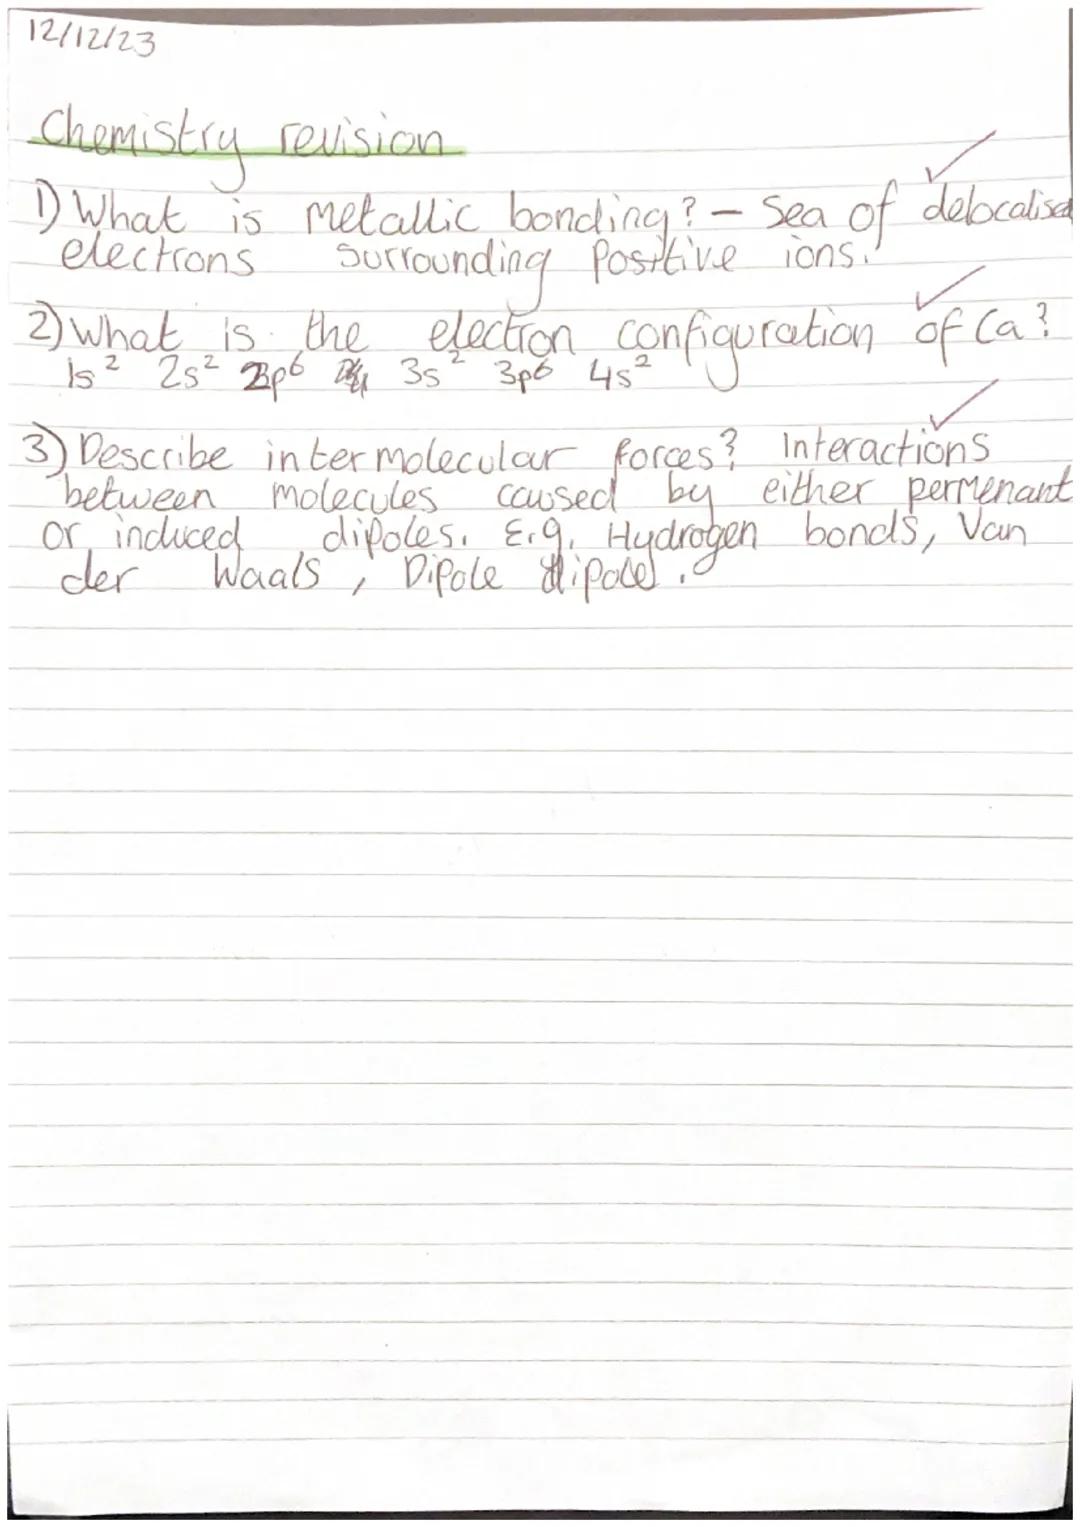 12/12/23
Chemistry revision
1) What is metallic bonding? - Sea of delocalised
electrons surrounding positive ions.
2) What is the electron configuration of Ca?
1s² 2s² 2p⁶ 3s² 3p⁶ 4s²
3) Describe intermolecular forces? Interactions
between molecules caused by either permenant
or induced dipoles. E.g. Hydrogen bonds, Van
der Waals, Dipole dipole.